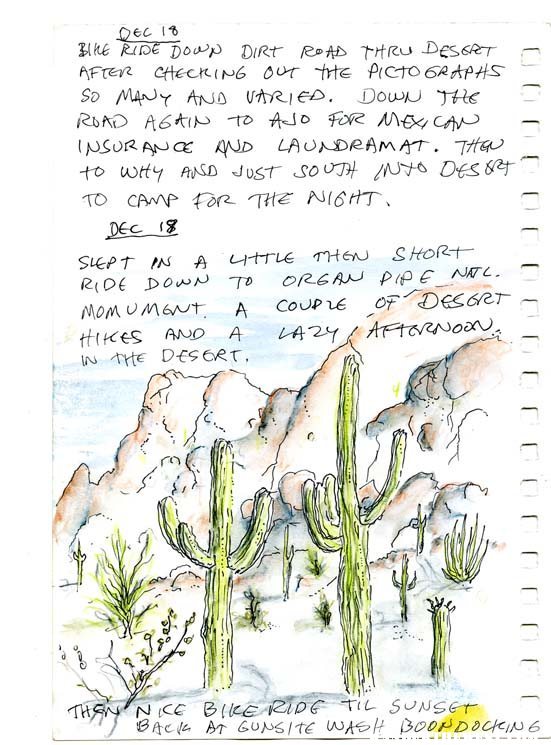 DEC 18
BIKE RIDE DOWN DIRT ROAD THRU DESERT
AFTER CHECKING OUT THE PICTOGRAPHS
SO MANY AND VARIED. DOWN THE
ROAD AGAIN TO AJO FOR MEXICAN
INSURANCE AND LAUNDRAMAT. THEN
TO WHY AND JUST SOUTH INTO DESERT
TO CAMP FOR THE NIGHT.
DEC 18
SLEPT IN A LITTLE THEN SHORT
RIDE DOWN TO ORGAN PIPE NATL.
MOMUMENT. A COUPLE OF DESERT
HIKES AND A LAZY AFTERNOON
IN THE DESERT.
THEN NICE BIKE RIDE TIL SUNSET
BACK AT GUNSITE WASH BOONDOCKING